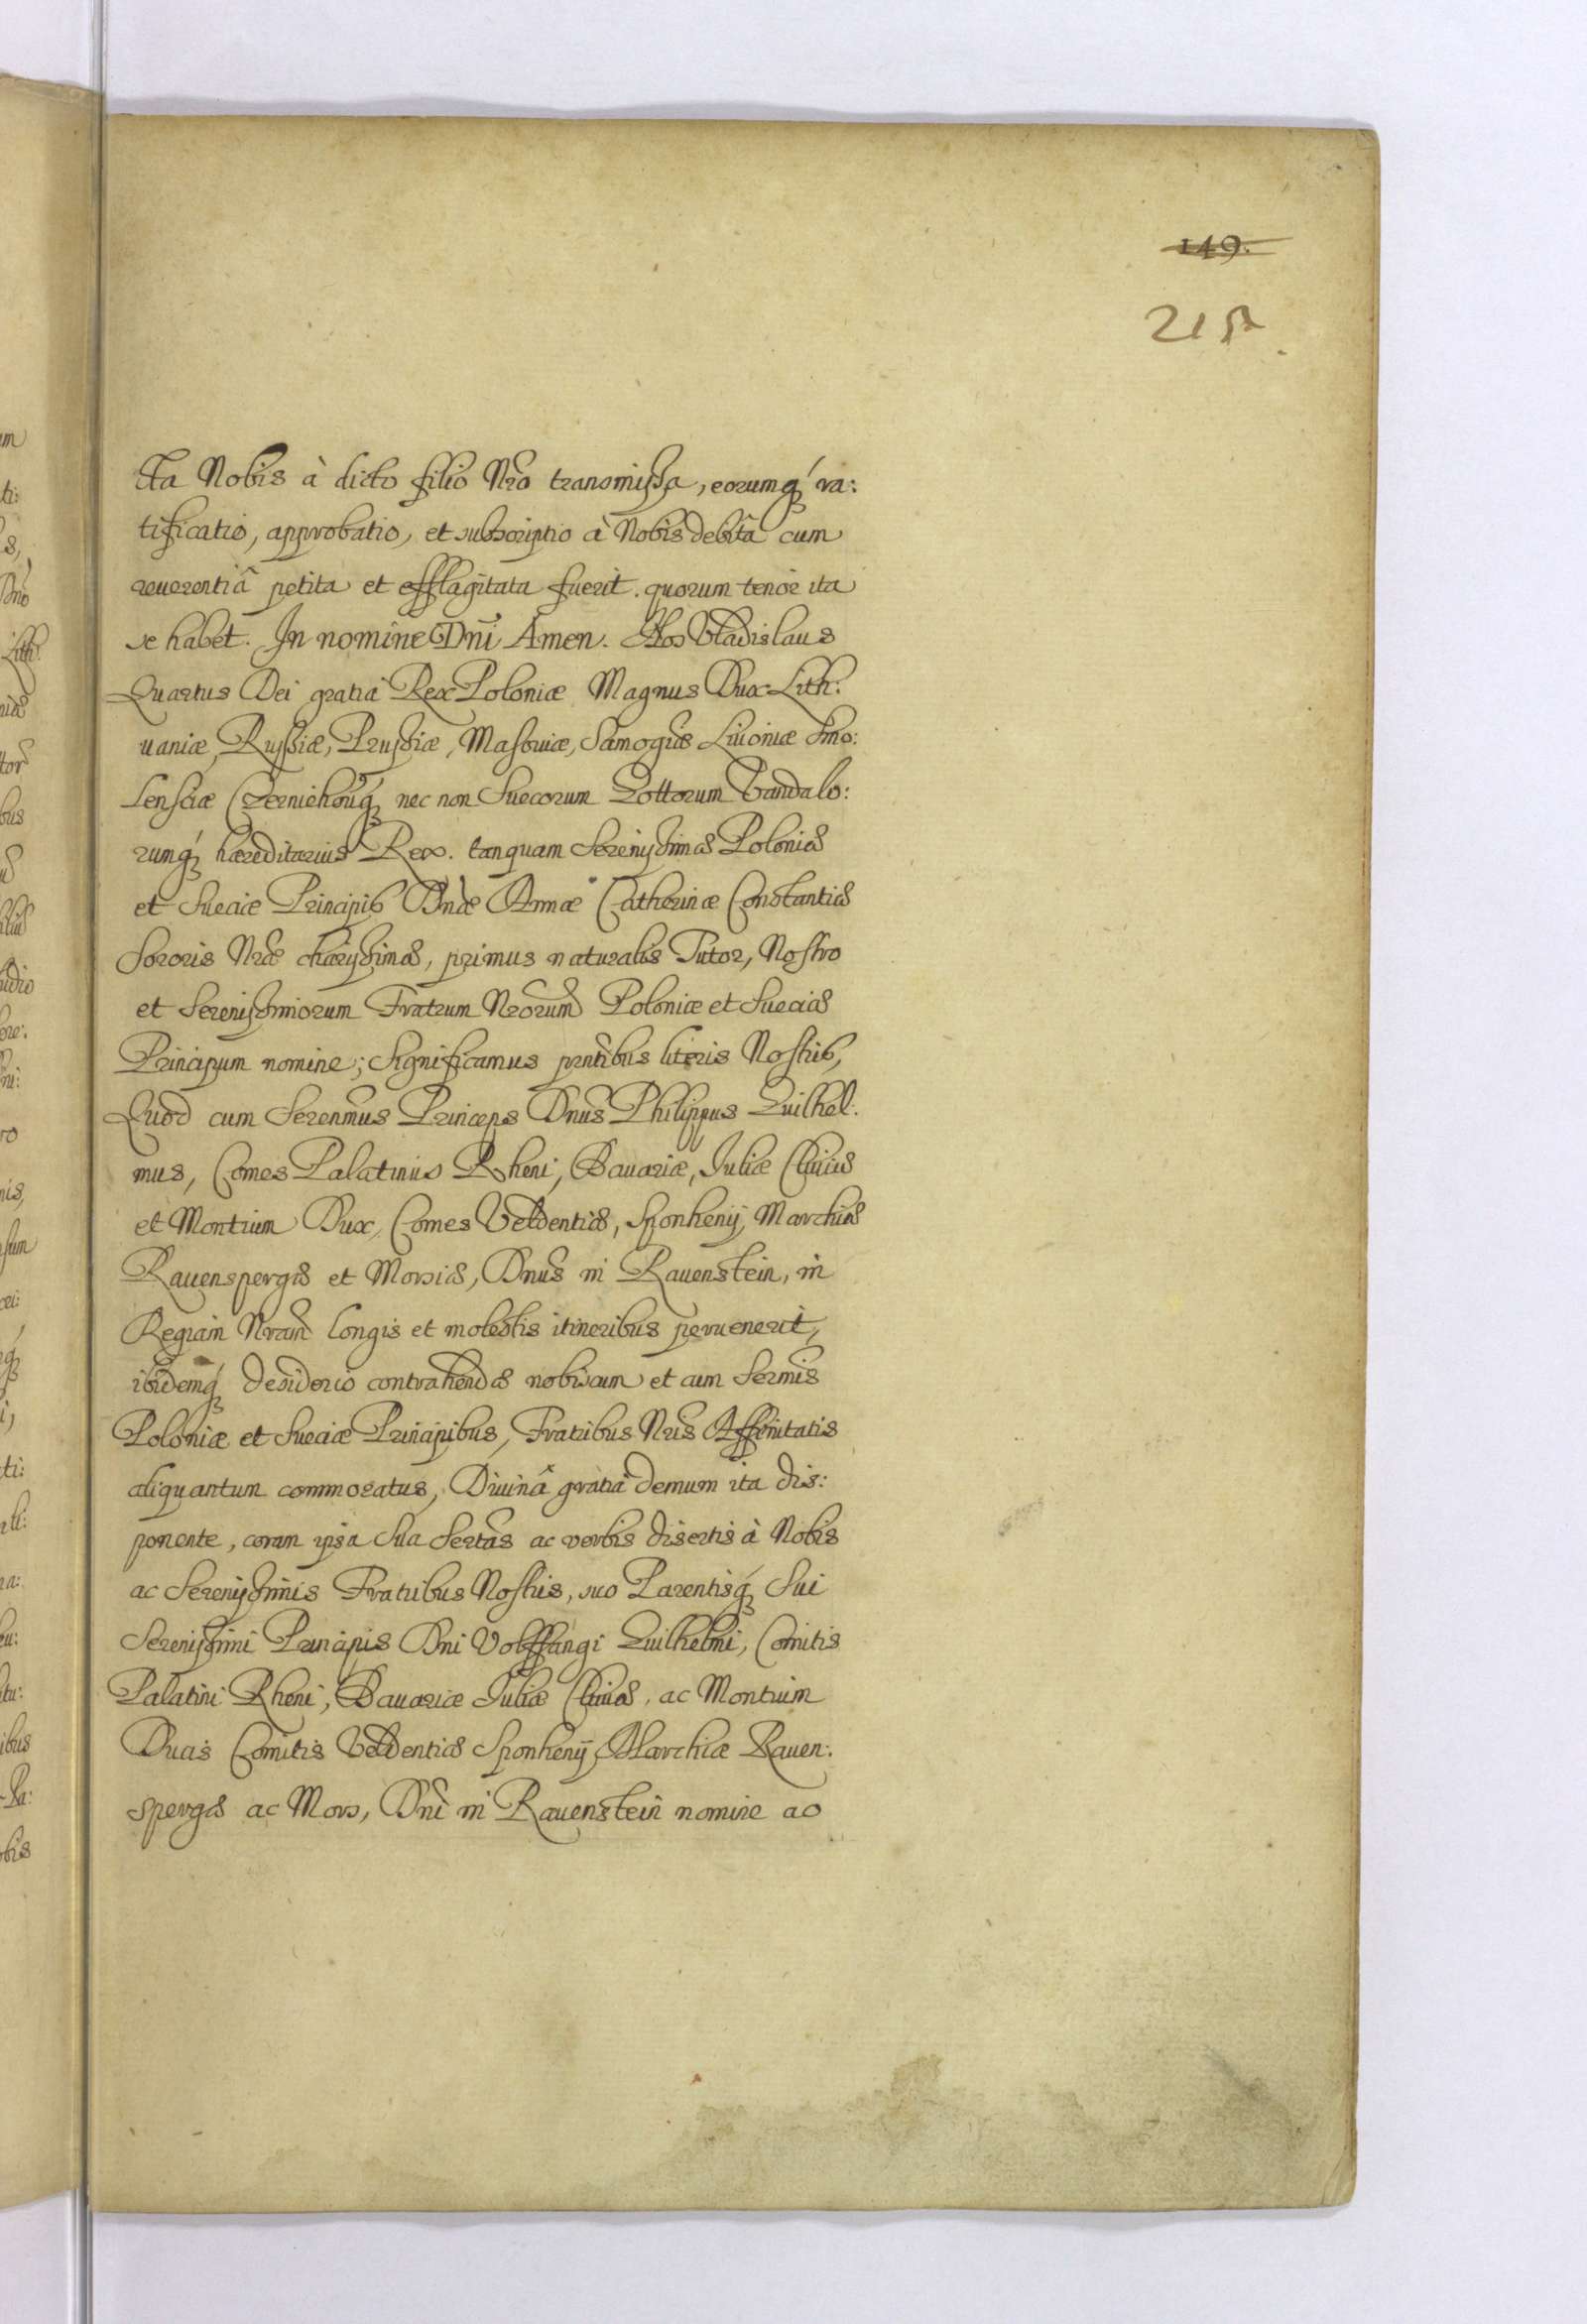 149.
215
Ita Nobis à dicto filio Nr̃o transmissa, eorumq́ ra:
tificatio, approbatio, et subscriptio à Nobis debita cum
reuerentiâ petita et efflagitata fuerit. quorum tenor ita
se habet. In nomine Dñi Amen. Nos Vladislaus
Quartus Dei gratia Rex Poloniæ Magnus Dux Lith:
uaniæ, Russiæ, Prussiæ, Masouiæ, Samogitiæ Liuoniæ Smo:
lensciæ Czerniehouiæq́ nec non Suecorum Gottorum Vandalo:
rumq́ hæreditarius Rex. tanquam Serenissimæ Poloniæ
et Sueciæ Principis Dñæ Annæ Catherinæ Constantiæ
Sororis Nr̃æ charissimæ, primus naturalis Tutor, Nostro
et Serenissimorum Fratrum Nr̃orum Poloniæ et Sueciæ
Principum nomine; Significamus prñtibus literis Nostris,
Quod cum Serenm̃us Princeps Dñus Philippus Guilhel:
mus, Comes Palatinus Rheni, Bauariæ, Juliæ Cliuiæ
et Montium Dux, Comes Veldentiæ, Sponhenij, Marchiæ
Rauenspergæ et Morsiæ, Dñus in Rauenstein, in
Regiam Nr̃am longis et molestis itineribus peruenerit,
ibidemq́ desiderio contrahendæ nobiscum et cum Serm̃is
Poloniæ et Sueciæ Principibus, Fratribus Nr̃is Affinitatis
aliquantum commoratus, Diuinâ gratiâ demum ita dis:
ponente, coram ipsa Sua Sertãs ac verbis disertis à Nobis
ac Serenissimis Fratribus Nostris, suo Parentisq́ Sui
Serenissimi Principis Dñi Volffangi Guilhelmi, Comitis
Palatini Rheni, Bauariæ Juliæ Cliuiæ, ac Montium
Ducis Comitis Veldentiæ Sponhenij, Marchiæ Rauen:
spergæ ac Mors, Dñi in Rauenstein nomine ac